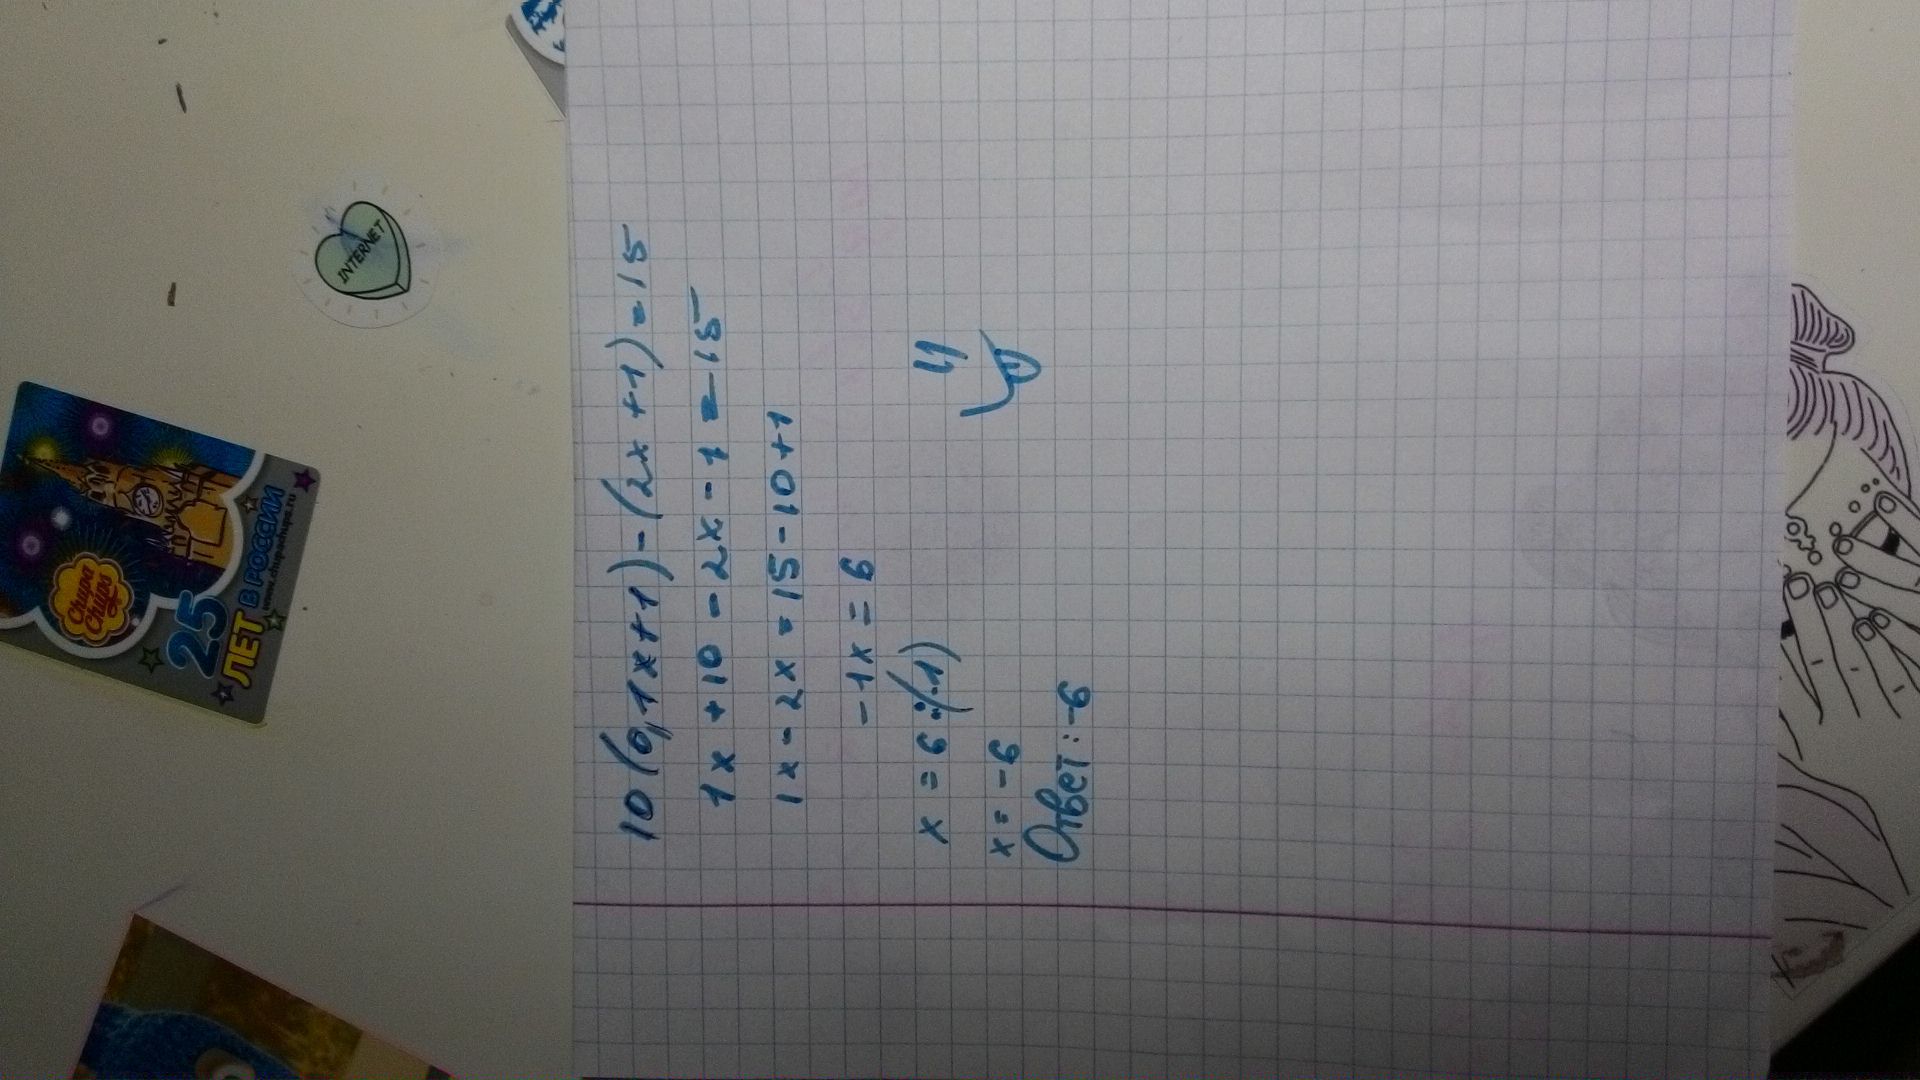 10(0,1x+1)-(2x+1)=15
1x+10-2x-1=15
1x-2x=15-10+1
-1x=6
x=6:(-1)
x=-6
Ответ:-6
INTERNET
Chupa Chups
25
ЛЕТ В РОССИИ
www.chupachups.ru